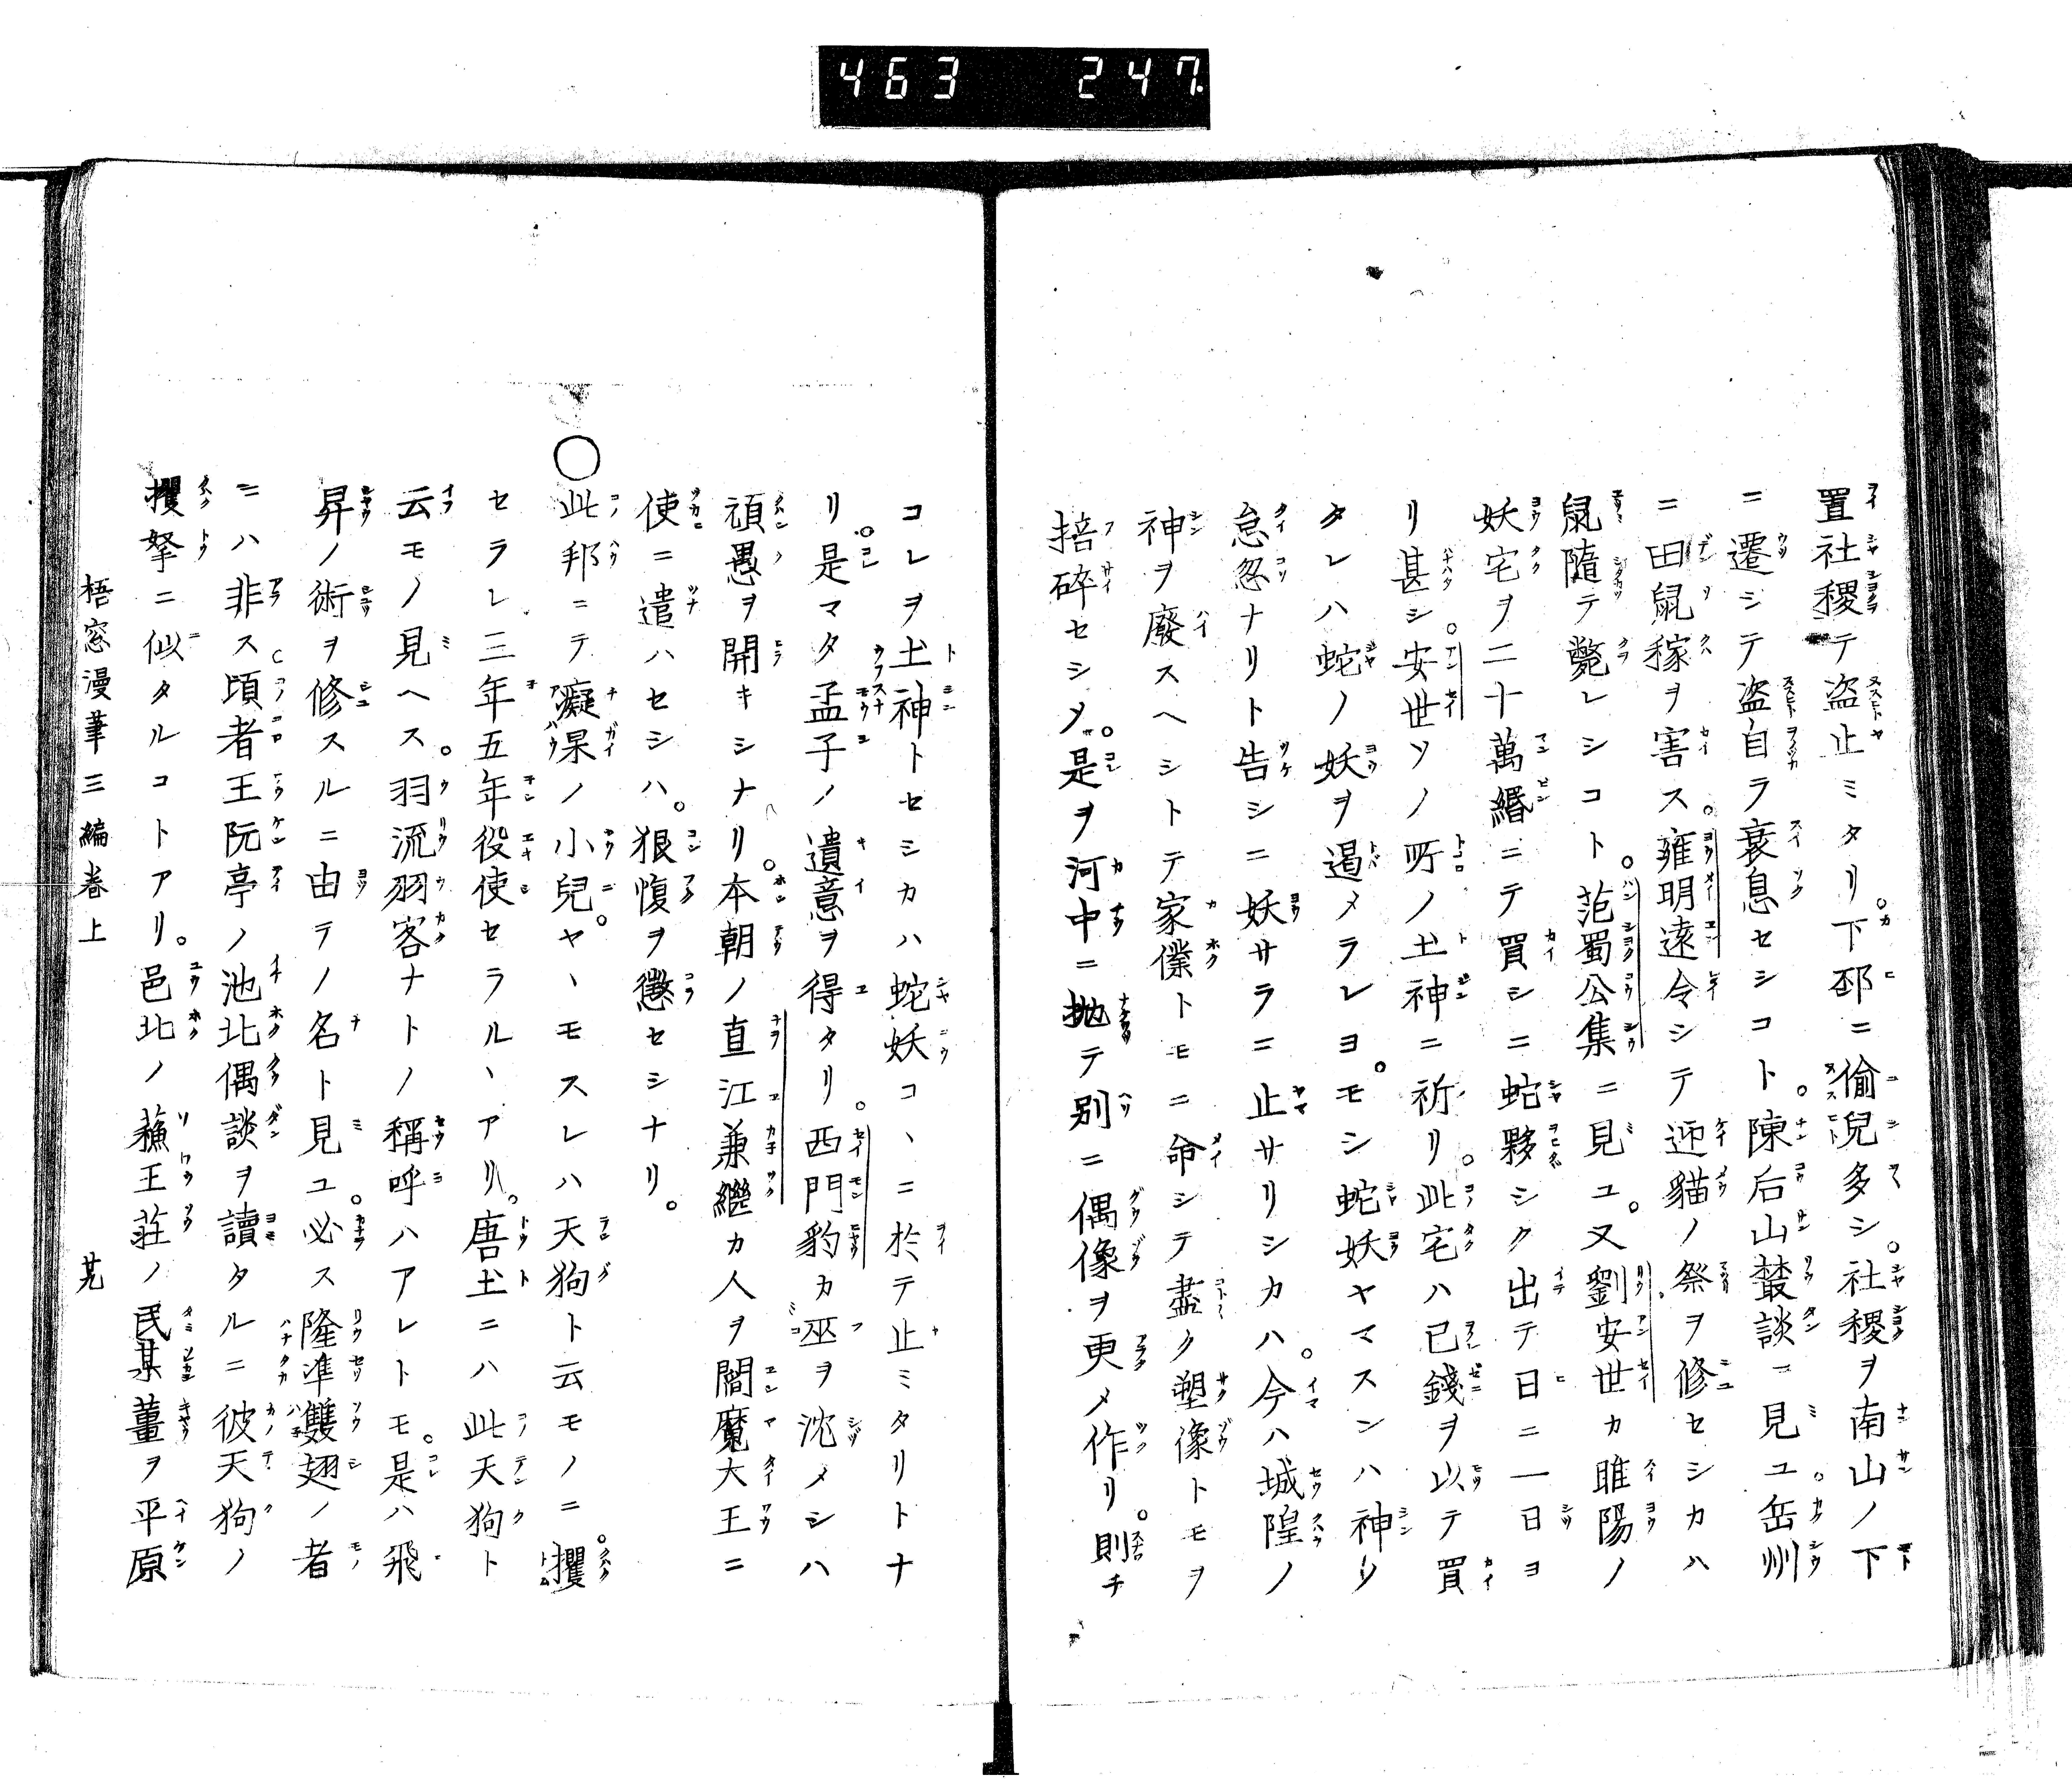 463 247
置社稷テ盗止ミタリ。下邳ニ偷兒多シ。社稷ヲ南山ノ下
ニ遷シテ盗自ラ衰息セシコト。陳后山叢談ニ見ユ。岳州
ニ田鼠稼ヲ害ス。雍明遠令シテ迎貓ノ祭ヲ修セシカハ
鼠隨テ斃レシコト。范蜀公集ニ見ユ。又劉安世カ睢陽ノ
妖宅ヲ二十萬緡ニテ買シニ蛇夥シク出テ日ニ一日ヨ
リ甚シ。安世ソノ所ノ土神ニ祈リ。此宅ハ已錢ヲ以テ買
タレハ蛇ノ妖ヲ遏メラレヨ。モシ蛇妖ヤマスンハ神ノ
怠忽ナリト告シニ妖サラニ止サリシカハ。今ハ城隍ノ
神ヲ廢スヘシトテ家僕トモニ命シテ盡ク塑像トモヲ
掊碎セシメ。是ヲ河中ニ抛テ別ニ偶像ヲ更メ作リ。則チ
コレヲ土神トセシカハ蛇妖コヽニ於テ止ミタリトナ
リ。是マタ孟子ノ遺意ヲ得タリ。西門豹カ巫ヲ沈メシハ
頑愚ヲ開キシナリ。本朝ノ直江兼繼カ人ヲ閻魔大王ニ
使ニ遣ハセシハ。狠愎ヲ懲セシナリ。
○此邦ニテ癡杲ノ小兒。ヤヽモスレハ天狗ト云モノニ。攫
セラレ三年五年役使セラルヽアリ。唐土ニハ此天狗ト
云モノ見ヘス。羽流羽客ナトノ稱呼ハアレトモ。是ハ飛
昇ノ術ヲ修スルニ由テノ名ト見ユ。必ス隆準雙翅ノ者
ニハ非ス。頃者王阮亭ノ池北偶談ヲ讀タルニ彼天狗ノ
攫拏ニ似タルコトアリ。邑北ノ蘓王莊ノ民某董ヲ平原
梧窓漫筆三編卷上